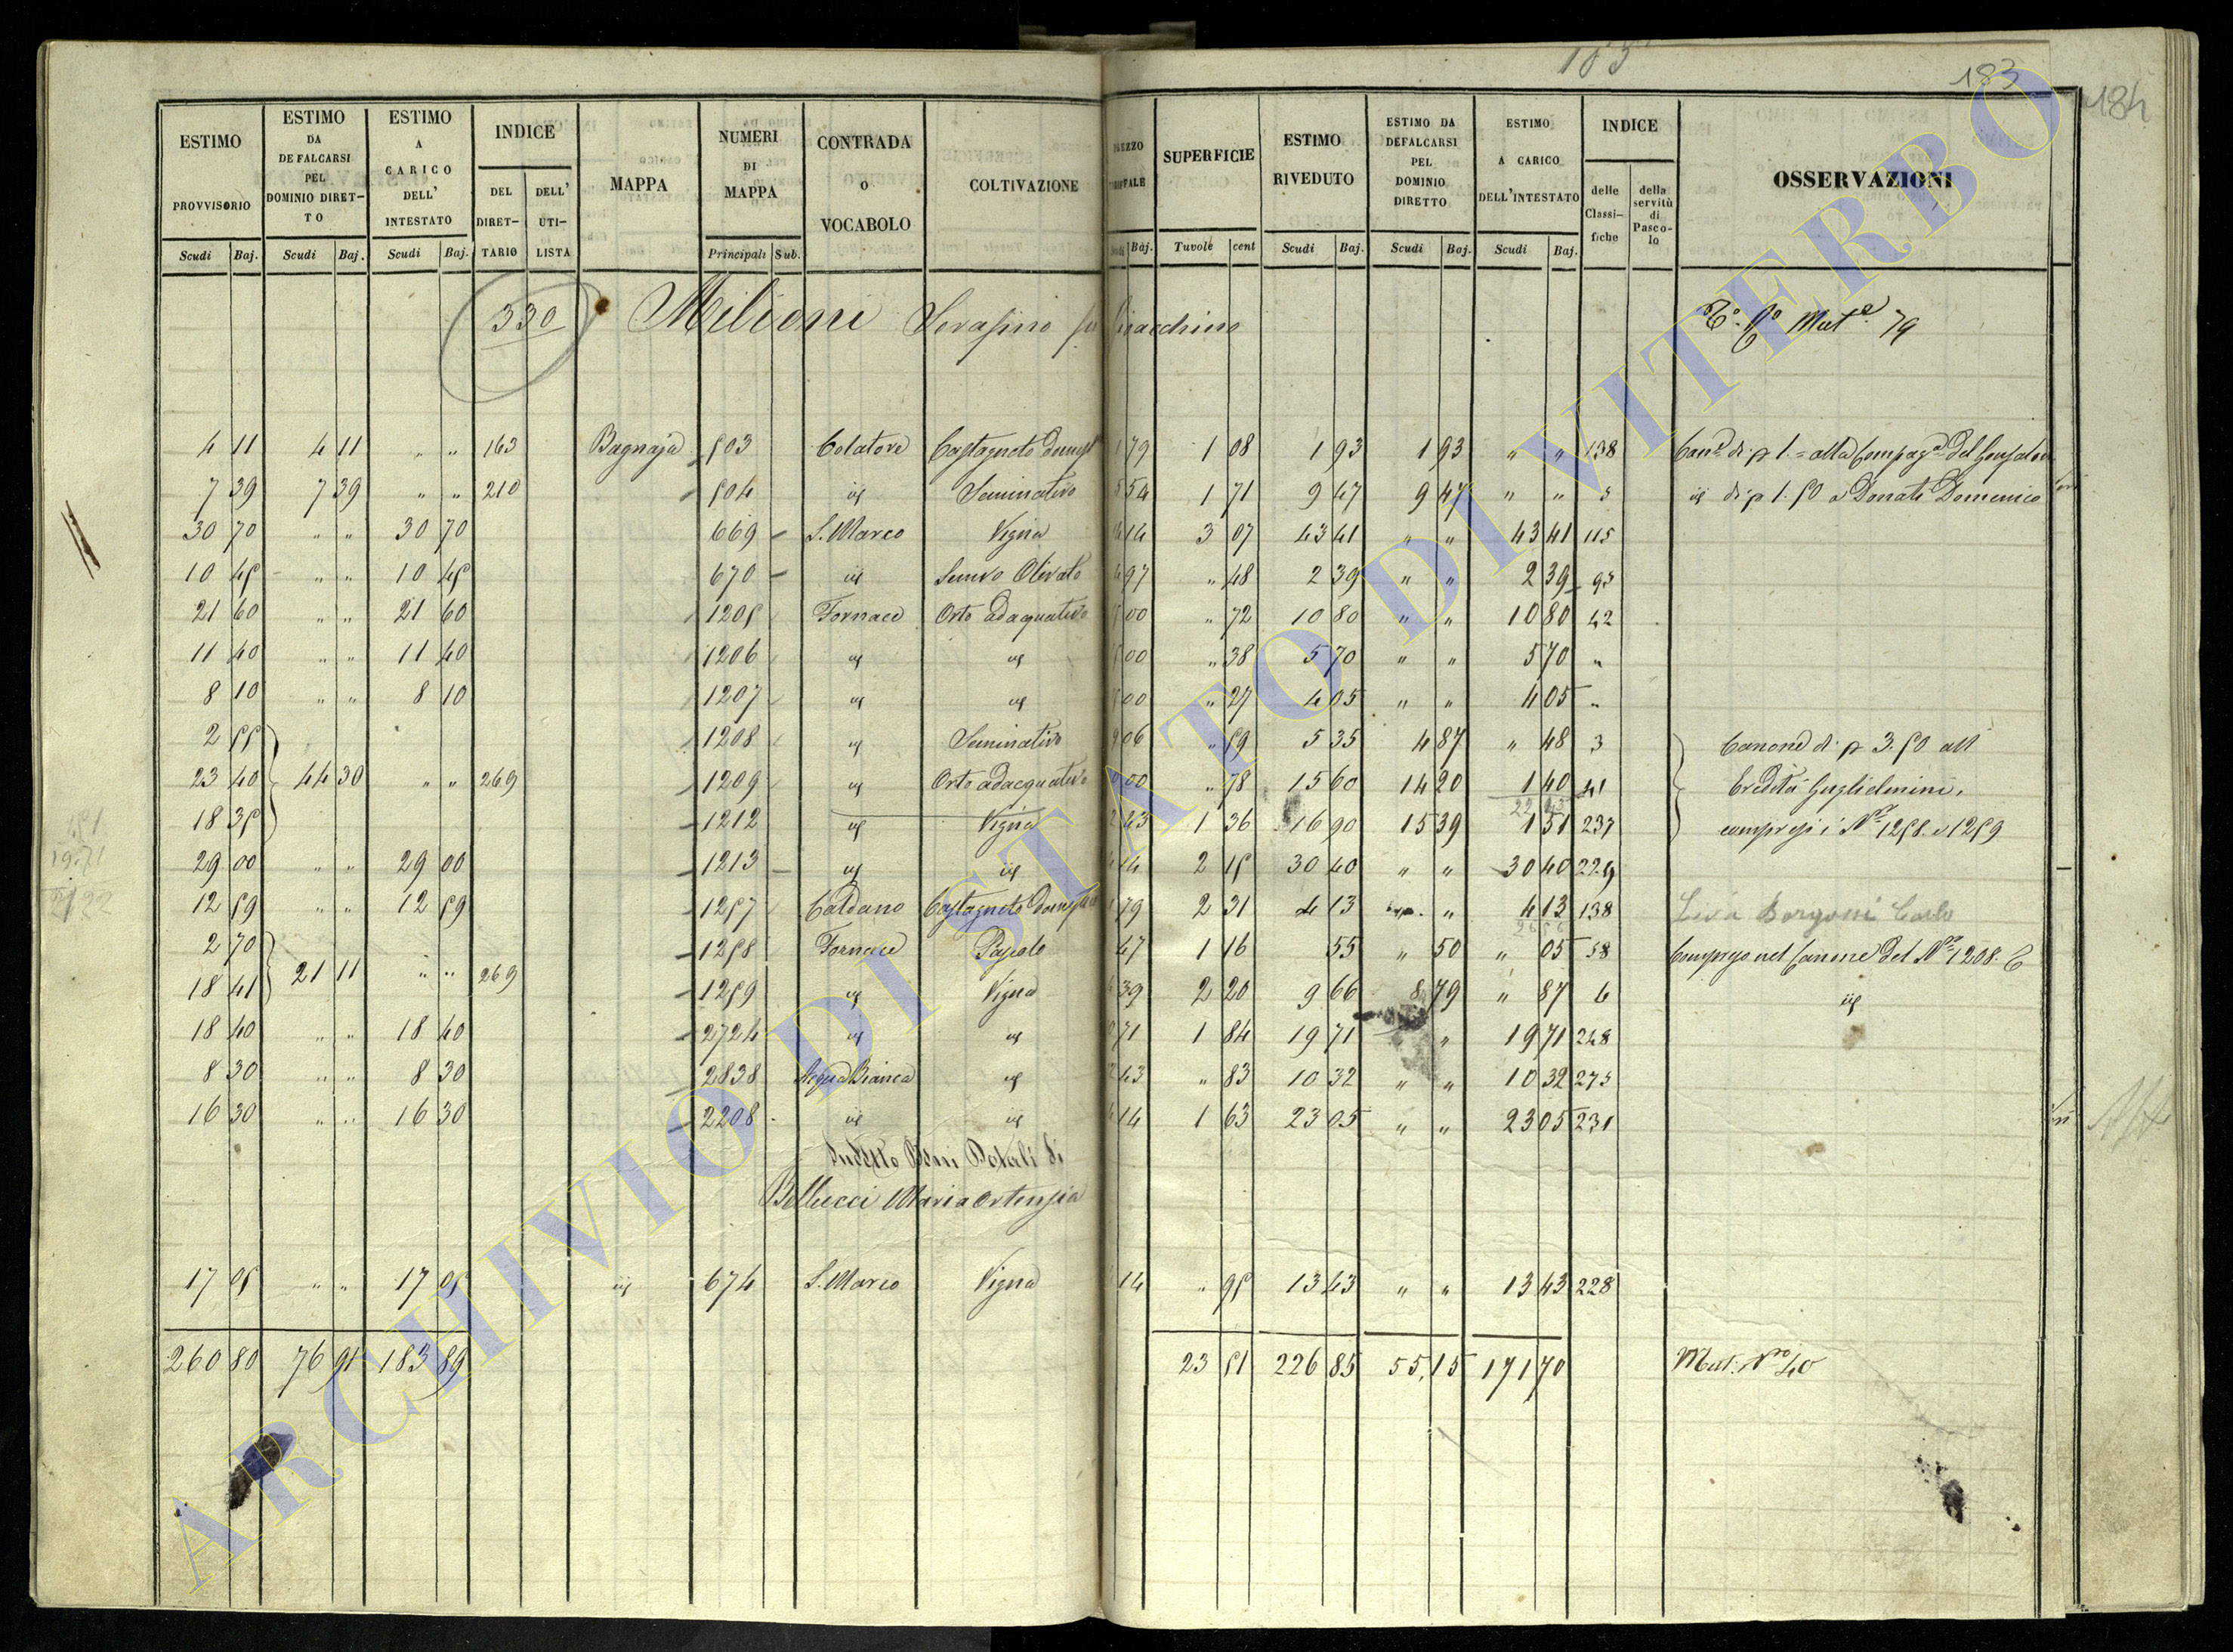 183
183
184
ESTIMO PROVVISORIO Scudi Baj.
ESTIMO DA DEFALCARSI PEL DOMINIO DIRET-TO Scudi Baj.
ESTIMO A CARICO DELL' INTESTATO Scudi Baj.
INDICE DEL DIRET-TARIO DELL' UTI-LISTA
MAPPA
NUMERI DI MAPPA Principali Sub.
CONTRADA O VOCABOLO
COLTIVAZIONE
SUPERFICIE Tavole cent
ESTIMO RIVEDUTO Scudi Baj.
ESTIMO DA DEFALCARSI PEL DOMINIO DIRETTO Scudi Baj.
ESTIMO A CARICO DELL'INTESTATO Scudi Baj.
INDICE delle Classi-fiche della servitù di Pasco-lo
OSSERVAZIONI
330 Milioni Serafino fu Gioacchino
79
4 11 4 11 " " 163 Bagnaja 503 Colatore Castagneto domest 79 1 08 1 93 1 93 " " 138
7 39 7 39 " " 210 504 id Seminativo 54 1 71 9 47 9 47 " " 5 id di p 1. 50 a Donati Domenico
30 70 " " 30 70 669 S. Marco Vigna 14 3 07 43 41 " " 43 41 115
10 45 " " 10 45 670 id Semvo Olivato 97 " 48 2 39 " " 2 39 95
21 60 " " 21 60 1205 Fornace Orto adaquativo 00 " 72 10 80 " " 10 80 42
11 40 " " 11 40 1206 id id 00 " 38 5 70 " " 5 70 "
8 10 " " 8 10 1207 id id 00 " 27 4 05 " " 4 05 "
2 55 1208 id Seminativo 06 " 59 5 35 4 87 " 48 3 Canone di p 3. 50 all
23 40 44 30 " " 269 1209 id Orto adacquativo 00 " 78 15 60 14 20 1 40 41 Eredità Guglielmini,
18 35 1212 id Vigna 43 1 36 16 90 15 39 1 51 237 compresi i Ni 1258. e 1259
29 00 " " 29 00 1213 id id 14 2 15 30 40 " " 30 40 229
12 59 " " 12 59 1257 Caldano Castagneto domest 79 2 31 4 13 " 4 13 138 Borgoni Carlo
2 70 1258 Fornace Pascolo 47 1 16 55 " 50 " 05 58 Compreso nel Canone del No 1208.
18 41 21 11 " " 269 1259 id Vigna 39 2 20 9 66 8 79 " 87 6 id
18 40 " " 18 40 2724 id id 71 1 84 19 71 " 19 71 248
8 30 " " 8 30 2838 Acqua Bianca id 43 " 83 10 32 " " 10 32 275
16 30 " " 16 30 2208 id id 14 1 63 23 05 " " 23 05 231
Sudetto Beni Dotali di
Bellucci Maria Ortensia
17 05 " " 17 05 id 674 S. Marco Vigna 14 " 95 13 43 " " 13 43 228
260 80 76 91 183 89 23 51 226 85 55,15 171 70 Mut: No 40
ARCHIVIO DI STATO DI VITERBO